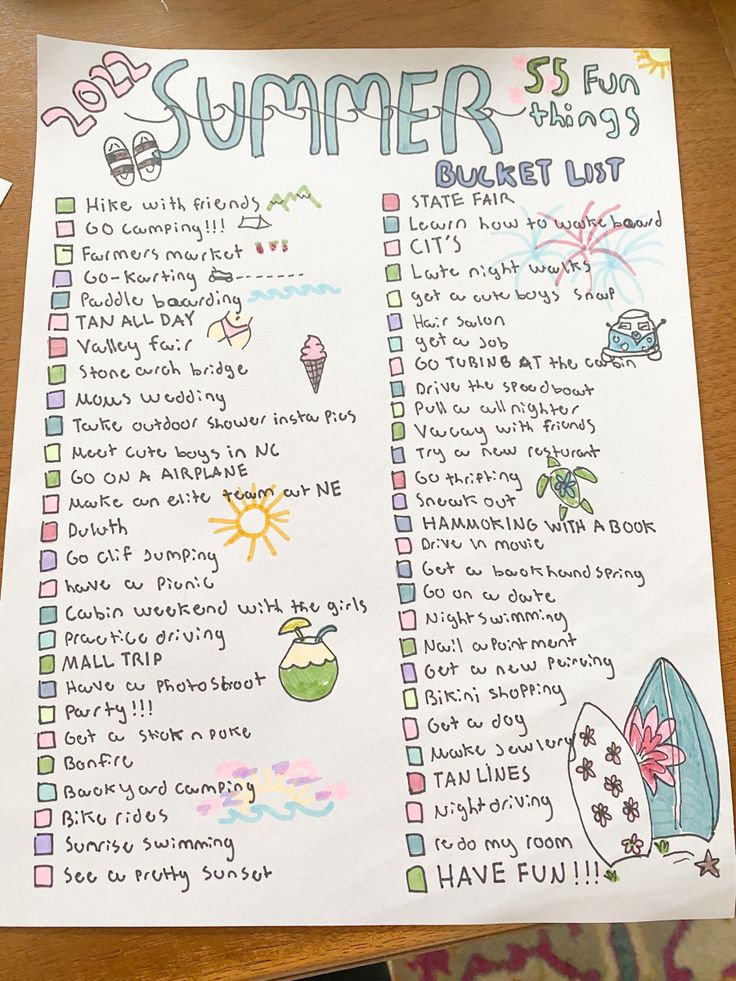 2022 SUMMER 55 Fun
things
BUCKET LIST
Hike with friends
GO camping!!!
Farmers market
Go-karting
Paddle boarding
TAN ALL DAY
Valley fair
Stone arch bridge
Moms wedding
Take outdoor shower insta pics
Meet cute boys in NC
GO ON A AIRPLANE
Make an elite team at NE
Duluth
Go clif Jumping
have a Picnic
Cabin weekend with the girls
Practice driving
MALL TRIP
Have a Photosboot
Party!!!
Get a stick n poke
Bonfire
Backyard camping
Bike rides
Sunrise swimming
See a pretty sunset
STATE FAIR
Learn how to wakeboard
CIT'S
Late night walks
get a cute boys snap
Hair salon
get a Job
GO TUBING AT the cabin
Drive the speedboat
Pull a all nighter
Vacay with friends
Try a new resturant
Go thrifting
Sneak out
HAMMOKING WITH A BOOK
Drive In movie
Get a back handspring
Go on a date
Night swimming
Nail apointment
Get a new peircing
Bikini shopping
Get a dog
Make Jewlery
TAN LINES
Night driving
redo my room
HAVE FUN!!!